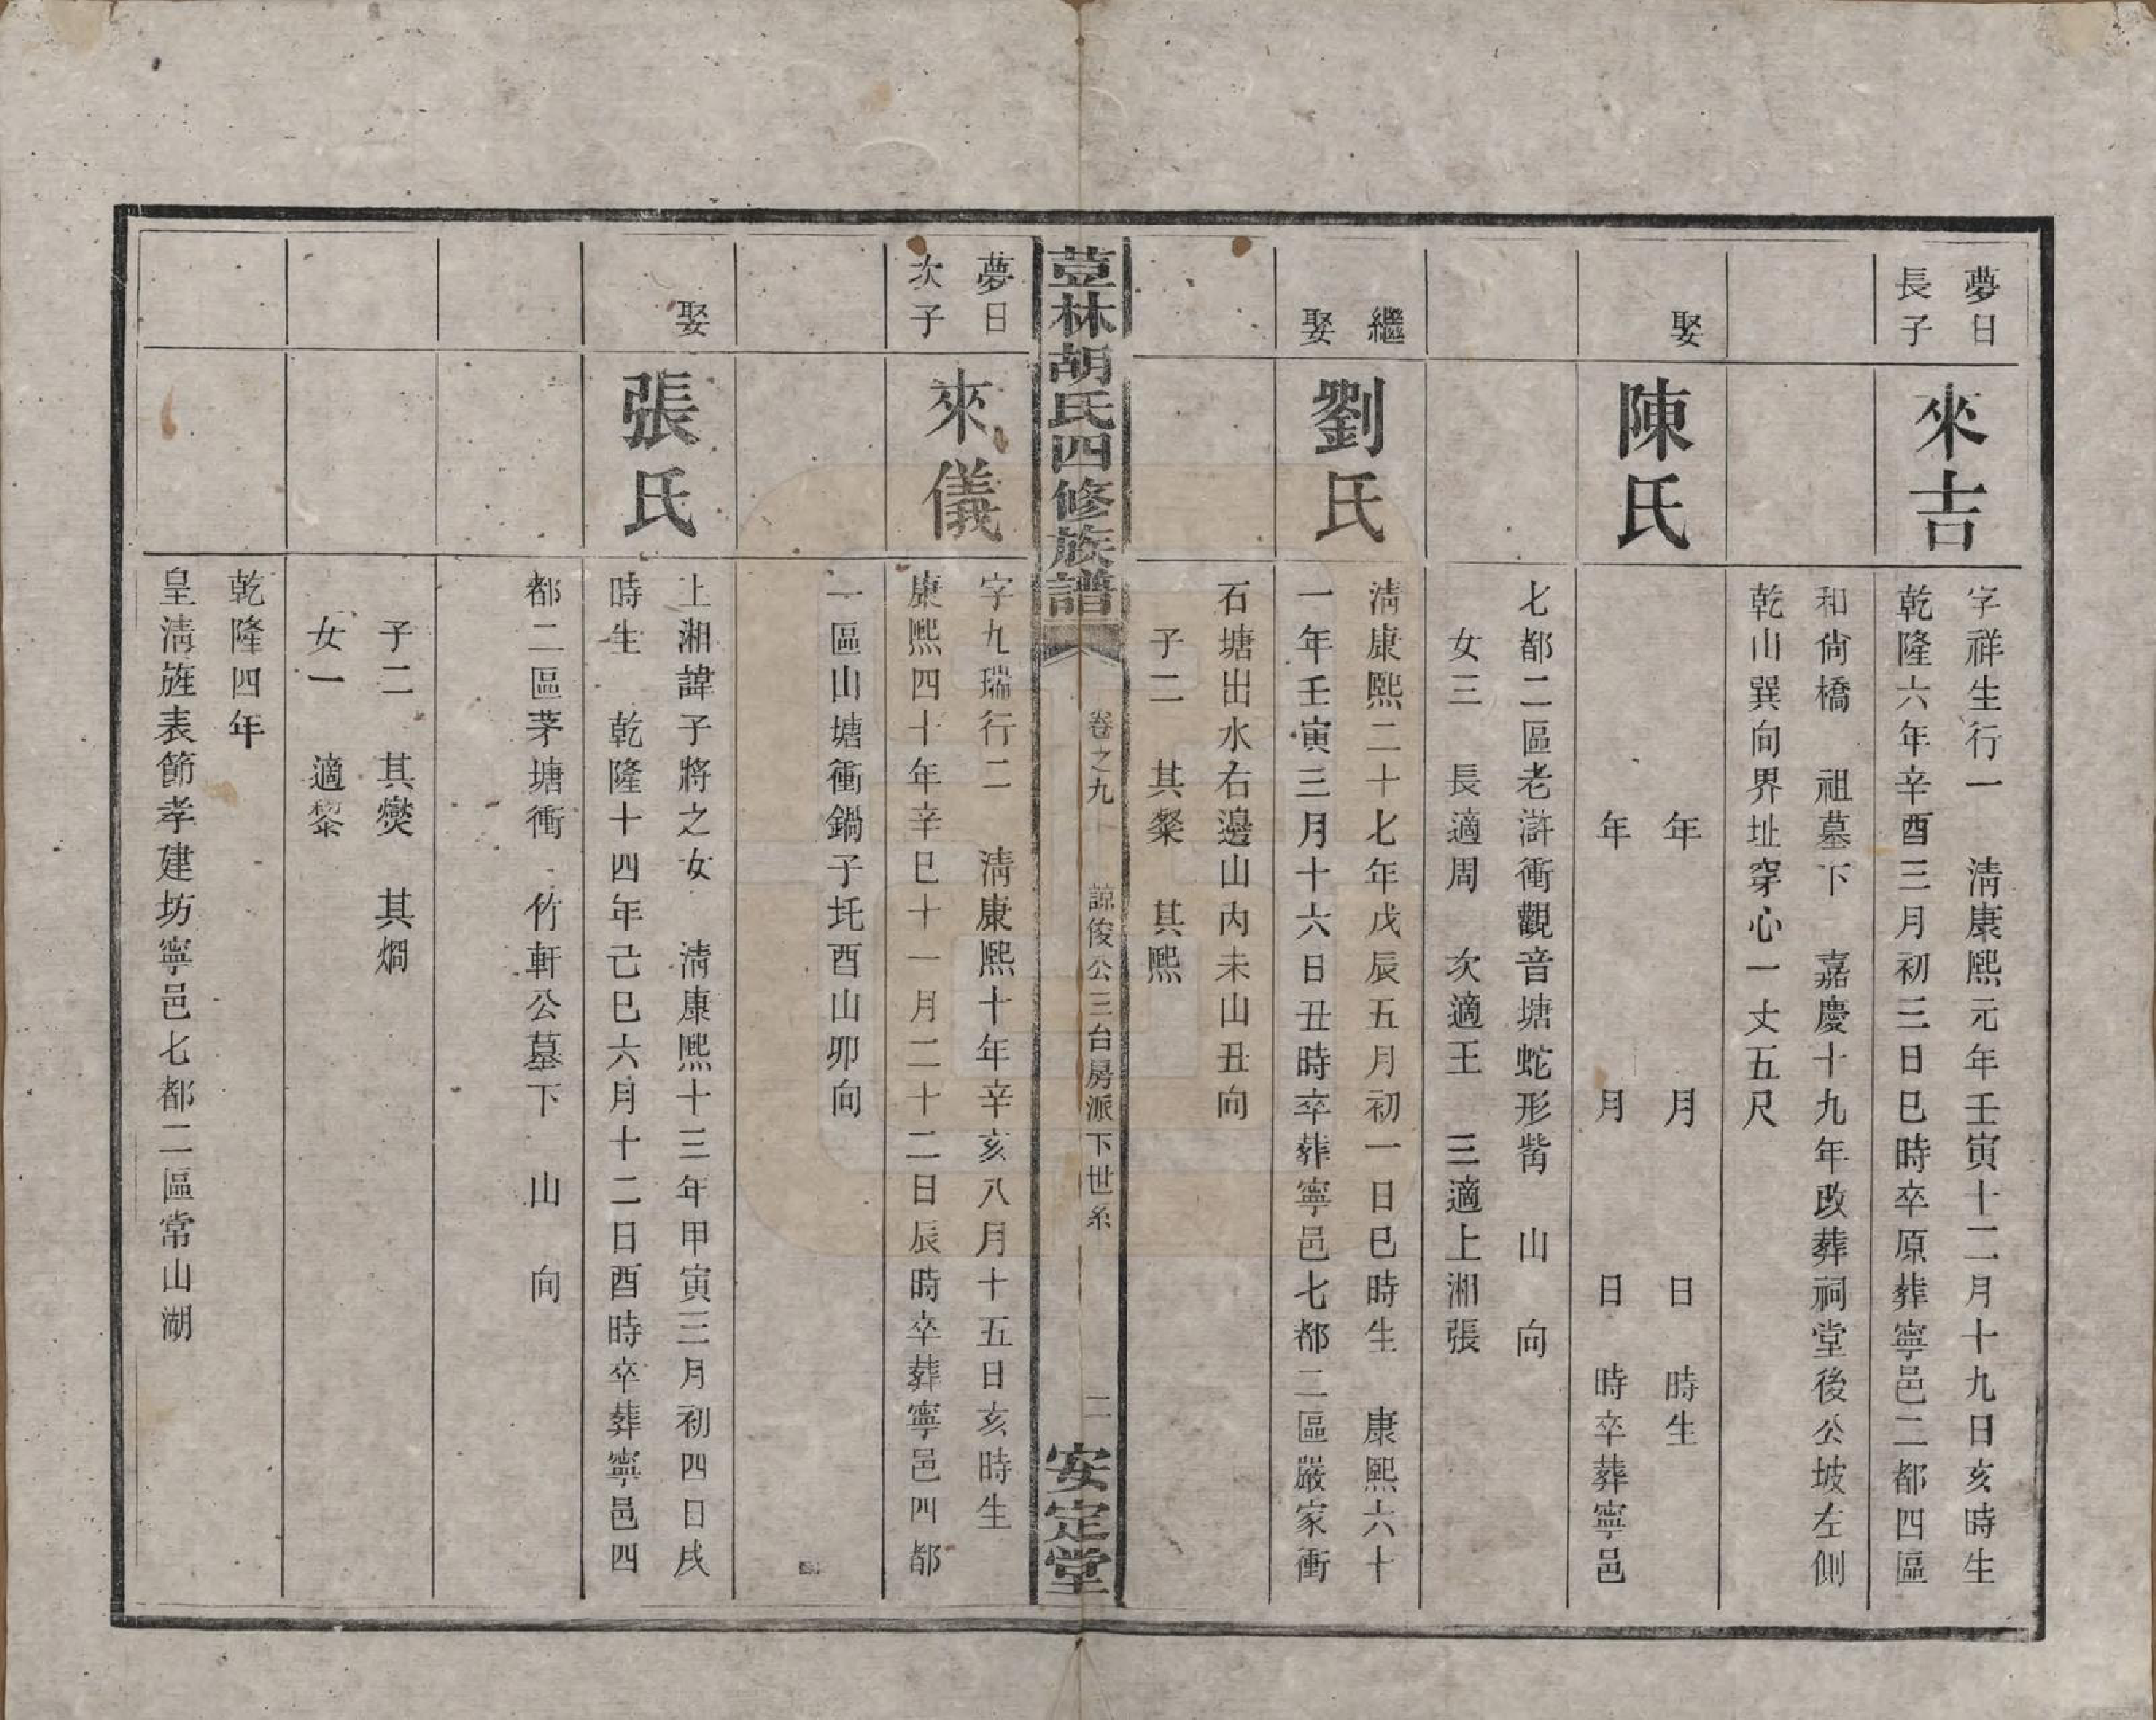 夢日
長子
來吉
字祥生行一　淸康熙元年壬寅十二月十九日亥時生
乾隆六年辛酉三月初三日巳時卒原葬寧邑二都四區
和尙橋　祖墓下　嘉慶十九年改葬祠堂後公坡左側
乾山巽向界址穿心一丈五尺
娶
陳氏
年　月　日　時生
年　月　日　時卒葬寧邑
七都二區老滸衝觀音塘蛇形嘴　山　向
女三　長適周　次適王　三適上湘張
繼
娶
劉氏
淸康熙二十七年戊辰五月初一日巳時生　康熙六十
一年壬寅三月十六日丑時卒葬寧邑七都二區嚴家衝
石塘出水右邊山內未山丑向
子二　其粲　其熙
荳林胡氏四修族譜
卷之九
諒俊公三台房派下世系
二
安定堂
夢日
次子
來儀
字九瑞行二　淸康熙十年辛亥八月十五日亥時生
康熙四十年辛巳十一月二十二日辰時卒葬寧邑四都
一區山塘衝鍋子圫酉山卯向
娶
張氏
上湘諱子將之女　淸康熙十三年甲寅三月初四日戌
時生　乾隆十四年己巳六月十二日酉時卒葬寧邑四
都二區茅塘衝　竹軒公墓下　山　向
子二　其爕　其燗
女一　適黎
乾隆四年
皇淸旌表節孝建坊寧邑七都二區常山湖